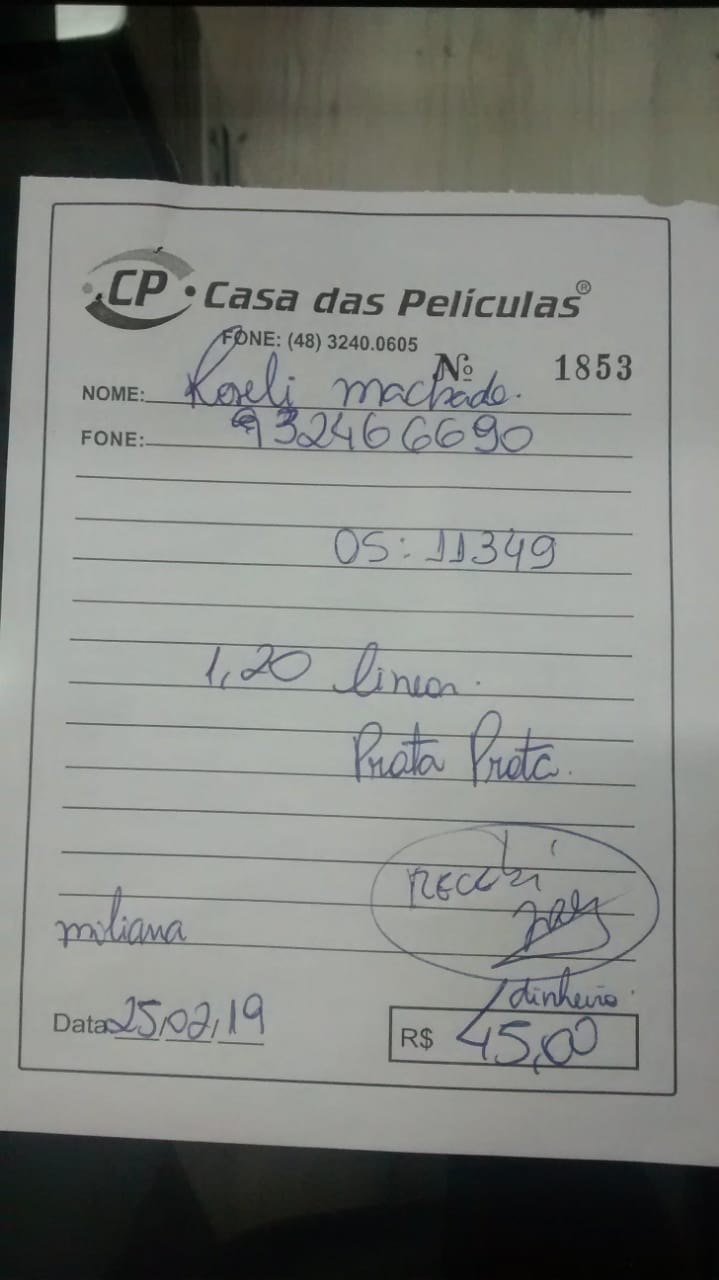 CP Casa das Películas®
FONE: (48) 3240.0605
Nº 1853
NOME: Roseli machado.
FONE: 932466690
OS: 11349
1,20 linear.
Prata Preta.
RECEBI
miliana
dinheiro.
Data 25/02/19
R$ 45,00